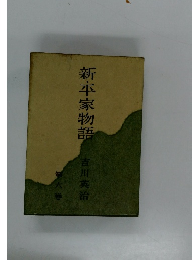 新・平家物語
吉川英治